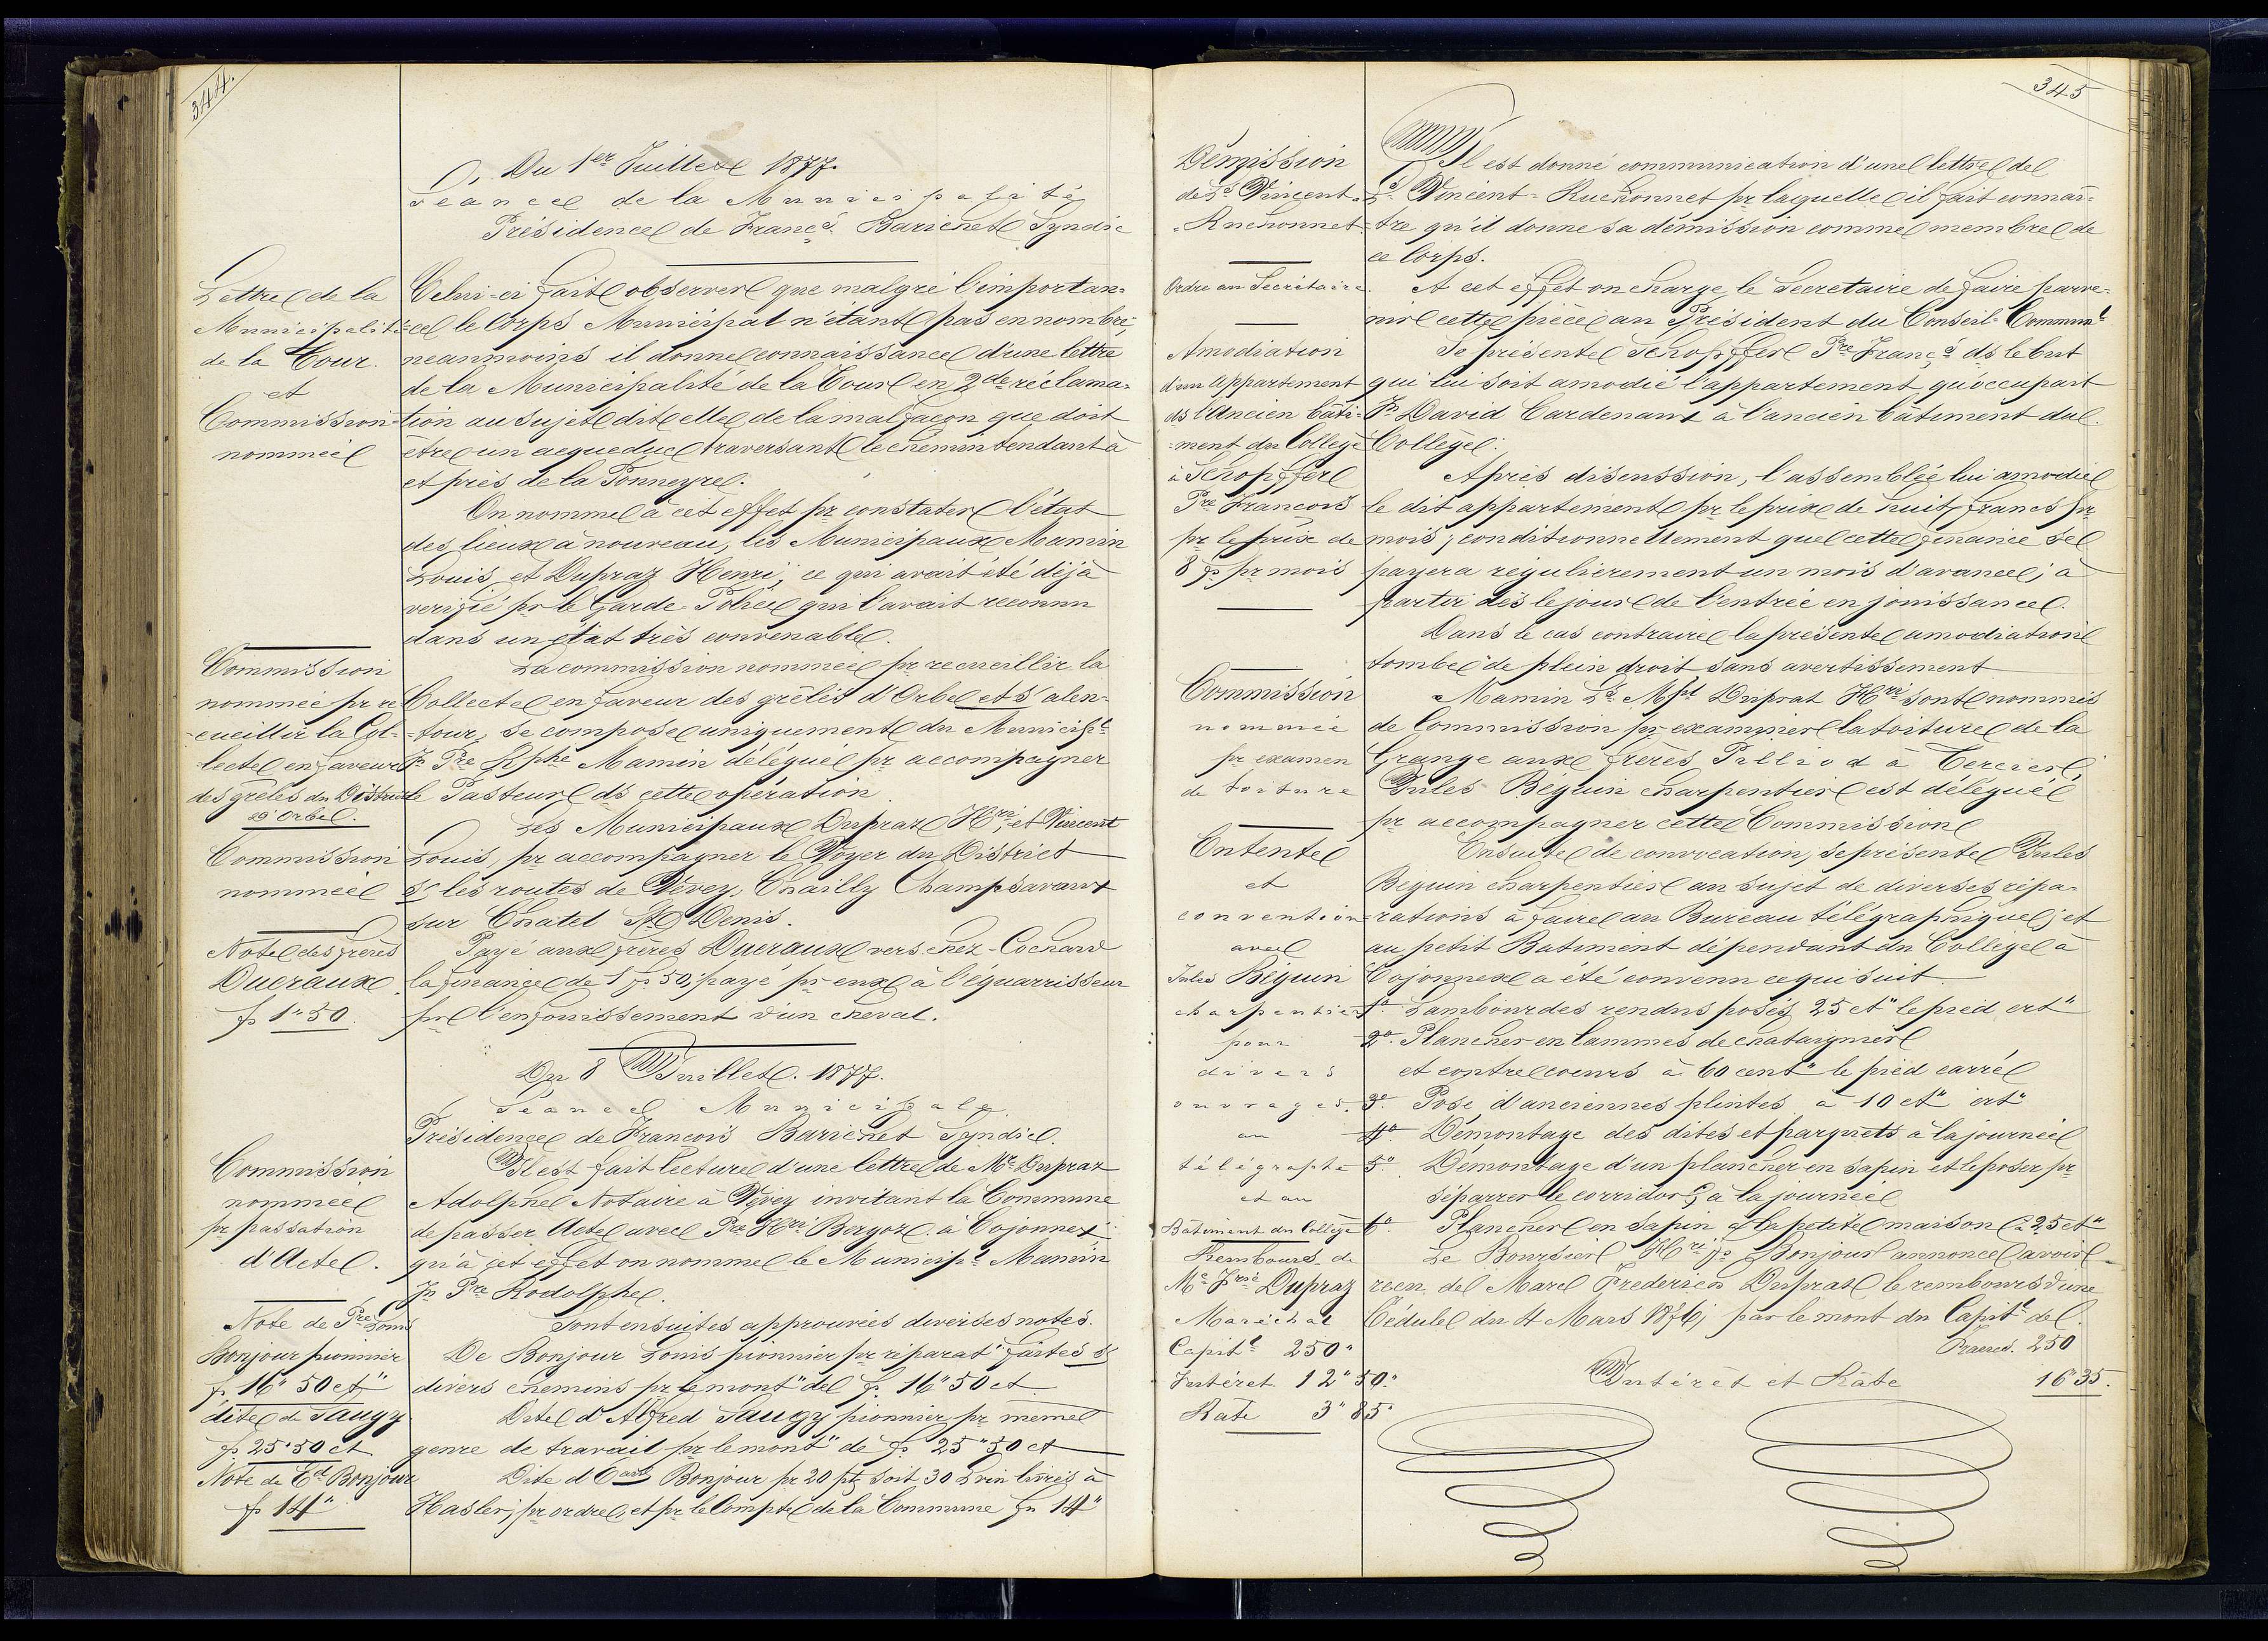 344.
Du 1er Juillet 1877.
Séance de la Municipalité
Présidence de Françs Barichet Syndic
Lettre de la
Municipalité
de la Tour.
et
Commission
nommée
Celui-ci fait observer que malgré l'importan-
-ce le Corps Municipal n'étant pas en nombre,
neanmoins il donne connaissance d'une lettre
de la Municipalité de la Tour en 2de réclama-
tion au sujet dit elle de la malfaçon que doit
être un acqueduc traversant le chemin tendant à
et près de la Ponneyre.
On nomme à cet effet pr constater l'état
des lieux à nouveau, les Municipaux Mamin
Louis et Dupraz Henri, ce qui avait été déjà
verifié pr le Garde-Police qui l'avait reconnu
dans un état très convenable.
Commission
nommée pr re
-cueillir la Col-
-lecte en faveur
des grêlés du District
d'Orbe.
La commission nommée pr recueillir la
Collecte en faveur des grêlés d'Orbe et s' alen-
-tour, se compose uniquement du Municipl
Jn Pre Rphe Mamin délégué pr accompagner
le Pasteur ds cette opération
Commission
nommée
Les Municipaux Dupraz Hri et Vincent
Louis, pr accompagner le Voyer du District
sr les routes de Vevey, Chailly Champsavaux
sur Chatel St Denis.
Note des frères
Ducraux
fr 1"50.
Payé aux frères Ducraux vers chez-Cochard
la finance de 1 fr 50, payé pr eux à l'équarrisseur
pr l'enfouissement d'un cheval.
Du 8 Juillet. 1877.
Séance Municipale
Présidence de Francois Barichet Syndic.
Commission
nommée
pr passation
d'Acte.
Il est fait lecture d'une lettre de Mr Dupraz
Adolphe Notaire à Vevey invitant la Commune
de passer Acte avec Pre Hri Bergoz à Cojonnex
qu'à cet effet on nomme le Municipl Mamin
Jn Pre Rodolphe.
Note de Pre Louis
Bonjour pionnier
fr 16" 50 ct"
Sont ensuites approuvées diverses notes.
De Bonjour Louis pionnier pr réparat" faites sr
divers chemins pr le mont" de fr. 16"50 ct
dite de Saugy
fr 25"50 ct
Dite d'Alfred Saugy pionnier pr même
genre de travail pr le mont" de fr 25"50 ct
Note de Ed Bonjour
fr 14"
Dite d' Bonjour pr 20 pts soit 30 L vin livrés à
Hasler, pr ordre, et pr le Compte de la Commune fr 14"
345
Démission
de Ls Vincent-
-Ruchonnet
Il est donné communication d'une lettre de
Ls Vincent-Ruchonnet pr laquelle il fait connaî-
-tre qu'il donne sa démission comme membre de
ce Corps.
Ordre au Secrétaire
A cet effet on charge le Secretaire de faire parve-
nir cette pièce au Président du Conseil-Communl
Amodiation
d'un appartement
ds l'Ancien bâti-
-ment du College
à Schopffer
Pre Francois
pr le prix de
8 fr pr mois
Se présente Schopffer Pre Françs ds le but
qui lui soit amodié l'appartement qu'occupait
Jn David Cardenaux à l'ancien bâtiment du
Collège.
Après discussion, l'assemblée lui amodie
le dit appartement pr le prix de huit francs pr
mois; conditionnellement que cette finance se
payera régulierement un mois d'avance; à
partir dès le jour de l'entrée en jouissance.
Dans le cas contraire la présente amodiation
tombe de plein droit sans avertissement
Commission
nommée
pr examen
de toiture
Mamin Ls Mpl Duprat Hri sont nommés
de Commission pr examiner la toiture de la
Grange aux frères Pilliod à Tercier,
Jules Béguin charpentier est délégué
pr accompagner cette Commission
Entente
et
convention
avec
Jules Béguin
charpentier
pour
divers
ouvrages.
au
télégraphe
et au
Bâtiment du Collège
Ensuite de convocation, se présente Jules
Béguin charpentier au sujet de diverses répa-
-rations à faire au Bureau télégraphique, et
au petit Batiment dépendant du Collège à
Cojonnex a été convenu ce qui suit
1o Lambourdes rendus posés, 25 ct" le pied crt"
2o. Plancher en lammes de chataignier
et contrecoeurs à 60 cent" le pied carré
3o Pose d'anciennes plintes à 10 ct" crt"
4o. Démontage des dites et parquets à la journée
5o Démontage d'un plancher en sapin et le poser pr
séparrer le corridor, à la journée
6o Plancher en sapin à la petite maison à 25 ct"
Rembours. de
Mc Fric Dupraz
Maréchal
Capitl 250"
Intéret 12"50"
Rate 3"85"
Le Boursier Hri Jn Bonjour annonce avoir
recu de Marc Frederich Dupraz le rembours d'une
Cédule du 4 Mars 1876, par le mont du Capitl de
Francs. 250
Intérêt et Rate 16"35.